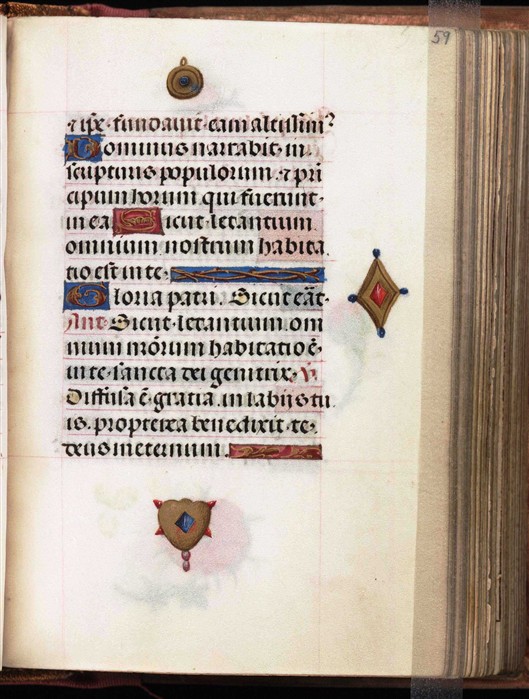 59
⁊ ip̃e·fundauit·eam altissim̃?
Dominus narrabit·in
scripturis populorum·⁊ pri
cipum horum qui fuerunt·
in ea Sicut·letantium
omnium nostrum habita
tio est in te·
Gloria patri. Sicut erãt·
Ant· Sicut·letantium·om
nium nrõrum habitatio ẽ·
in te·sancta dei genitrix· V̇
Diffusa ẽ·gratia·in labijs tu
is·propterea benedixit·te·
deus in eternum.